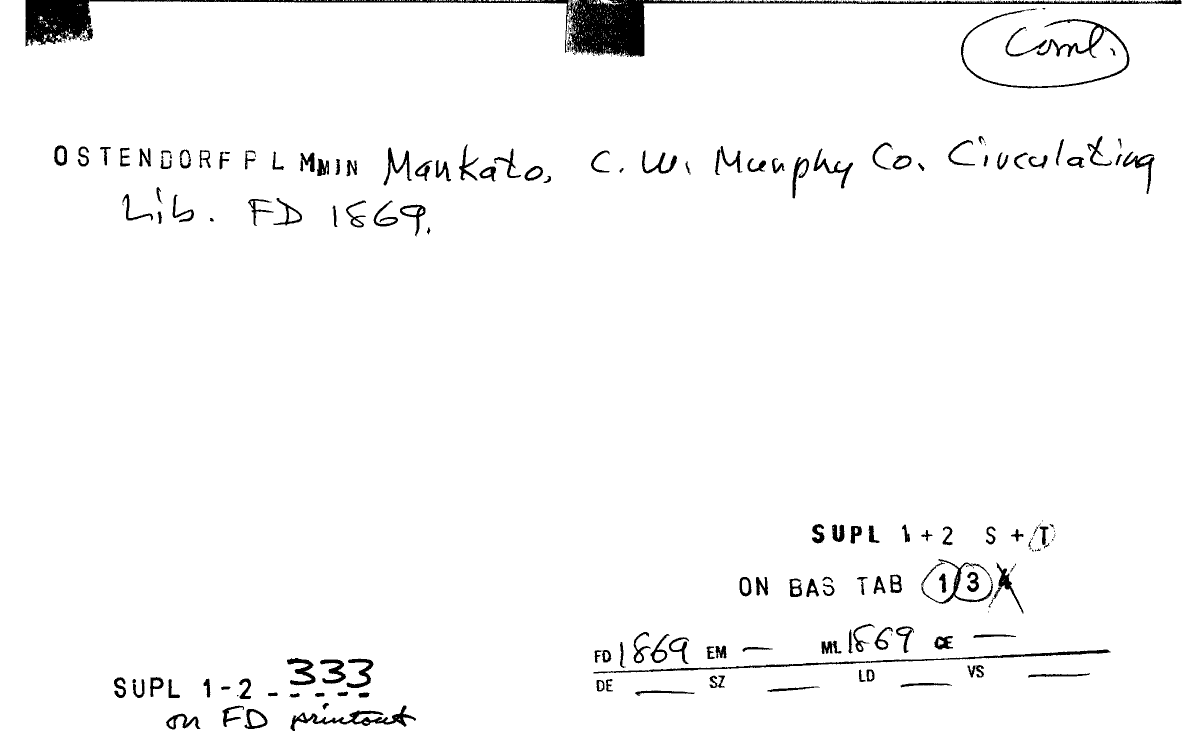 Coml.
OSTENDORF P L MMIN Mankato, C. W. Murphy Co. Circulating
Lib. FD 1869.
SUPL 1+2 S + T
ON BAS TAB 1 3 4
FD 1869 EM — ML 1869 CE —
DE SZ LD VS
SUPL 1-2 - 333
on FD printout